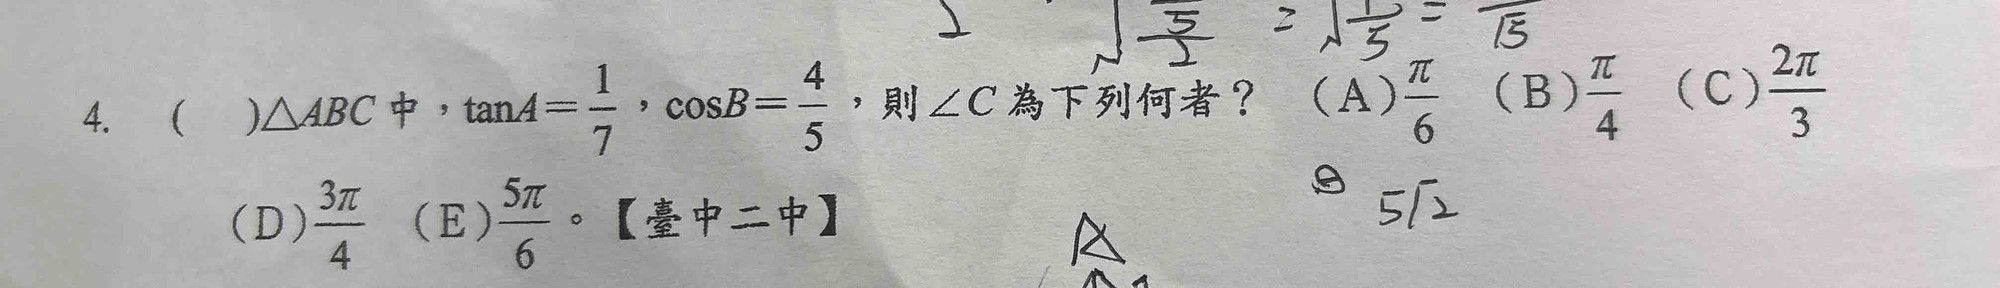 2 √ 5/2 = √1/5 = /√5
4. ( )△ABC 中，tanA=1/7，cosB=4/5，則∠C 為下列何者？ (A)π/6 (B)π/4 (C)2π/3
(D)3π/4 (E)5π/6。【臺中二中】
θ 5√2